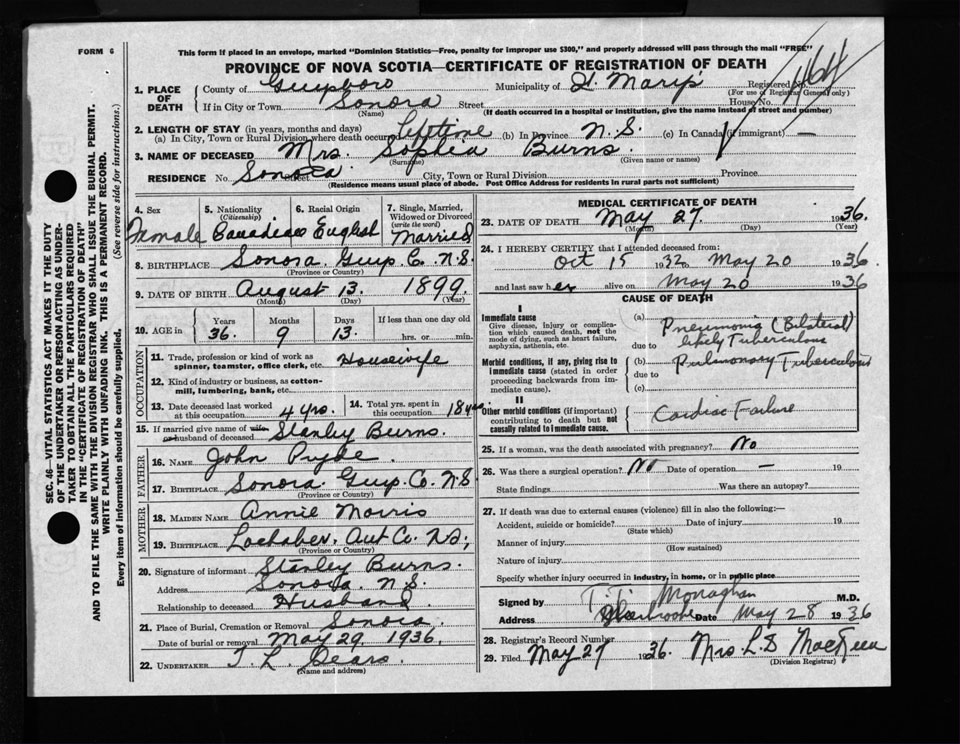 FORM 6
This form if placed in an envelope, marked "Dominion Statistics—Free, penalty for improper use $300," and properly addressed will pass through the mail "FREE"
PROVINCE OF NOVA SCOTIA—CERTIFICATE OF REGISTRATION OF DEATH
1. PLACE OF DEATH
County of Guysboro Municipality of St Mary's Registered No. 1464
(For use of Registrar General only)
If in City or Town Sonora Street House No.
(Name) (If death occurred in a hospital or institution, give the name instead of street and number)
2. LENGTH OF STAY (in years, months and days)
(a) In City, Town or Rural Division where death occurred Lifetime (b) In Province N.S. (c) In Canada (if immigrant) —
3. NAME OF DECEASED Mrs. Sophia Burns.
(Surname) (Given name or names)
RESIDENCE No. Sonora Street City, Town or Rural Division Province
(Residence means usual place of abode. Post Office Address for residents in rural parts not sufficient)
4. Sex Female
5. Nationality (Citizenship) Canadian
6. Racial Origin English
7. Single, Married, Widowed or Divorced (write the word) Married
8. BIRTHPLACE Sonora Guy. Co. N.S.
(Province or Country)
9. DATE OF BIRTH August 13. 1899
(Month) (Day) (Year)
10. AGE in Years 36. Months 9 Days 13. If less than one day old hrs. or min.
OCCUPATION
11. Trade, profession or kind of work as spinner, teamster, office clerk, etc. Housewife
12. Kind of industry or business, as cotton-mill, lumbering, bank, etc.
13. Date deceased last worked at this occupation 4 yrs. 14. Total yrs. spent in this occupation 18 years
15. If married give name of wife or husband of deceased Stanley Burns.
FATHER
16. NAME John Pride.
17. BIRTHPLACE Sonora Guy. Co. N.S
(Province or Country)
MOTHER
18. MAIDEN NAME Annie Morris
19. BIRTHPLACE Lochaber, Ant Co. N.S;
(Province or Country)
20. Signature of informant Stanley Burns.
Address Sonora N.S.
Relationship to deceased Husband
21. Place of Burial, Cremation or Removal Sonora
Date of burial or removal May 29. 1936.
22. UNDERTAKER T. L. Sears.
(Name and address)
MEDICAL CERTIFICATE OF DEATH
23. DATE OF DEATH May 27. 1936.
(Month) (Day) (Year)
24. I HEREBY CERTIFY that I attended deceased from:
Oct 15 1932 to May 20 1936
and last saw her alive on May 20 1936
CAUSE OF DEATH
I
Immediate cause
Give disease, injury or complication which caused death, not the mode of dying, such as heart failure, asphyxia, asthenia, etc.
(a) Pneumonia (Bilateral)
likely Tuberculous
due to
Morbid conditions, if any, giving rise to immediate cause (stated in order proceeding backwards from immediate cause).
(b) Pulmonary Tuberculosis
due to
(c)
II
Other morbid conditions (if important) contributing to death but not causally related to immediate cause.
Cardiac Failure
25. If a woman, was the death associated with pregnancy? No
26. Was there a surgical operation? No Date of operation — 19
State findings Was there an autopsy?
27. If death was due to external causes (violence) fill in also the following:—
Accident, suicide or homicide? Date of injury 19
(State which)
Manner of injury
(How sustained)
Nature of injury
Specify whether injury occurred in industry, in home, or in public place
Signed by Monaghan M.D.
Address Sherbrooke Date May 28 1936
28. Registrar's Record Number
29. Filed May 27 1936. Mrs. L.D MacKeen
(Division Registrar)
SEC. 46—VITAL STATISTICS ACT MAKES IT THE DUTY
OF THE UNDERTAKER OR PERSON ACTING AS UNDER-
TAKER TO OBTAIN ALL THE PARTICULARS REQUIRED
IN THE "CERTIFICATE OF REGISTRATION OF DEATH"
AND TO FILE THE SAME WITH THE DIVISION REGISTRAR WHO SHALL ISSUE THE BURIAL PERMIT.
WRITE PLAINLY WITH UNFADING INK. THIS IS A PERMANENT RECORD.
Every item of information should be carefully supplied. (See reverse side for instructions.)